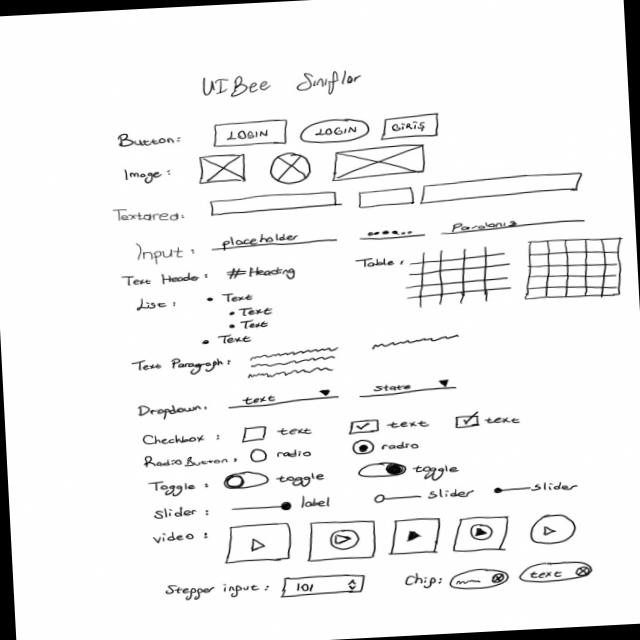 UIBee Sınıflar
Button: LOGIN LOGIN GİRİŞ
Image:
Textarea:
Input: placeholder •••••• Parolanız
Text Header: # Heading Table:
List: • Text
• Text
• Text
• Text
Text Paragraph:
Dropdown: text state
Checkbox: text text text
Radio Button: radio radio
Toggle: toggle toggle
Slider: label slider slider
video:
Stepper input: 101 Chip: text